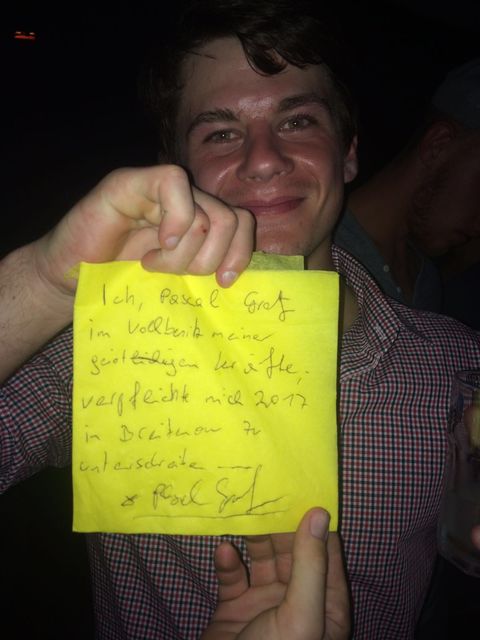 Ich, Pascal Graf
im Vollbesitz meiner
geistigen Kräfte,
verpflichte mich 2017
in Breitnau zu
unterschreiben
x Pascal Graf